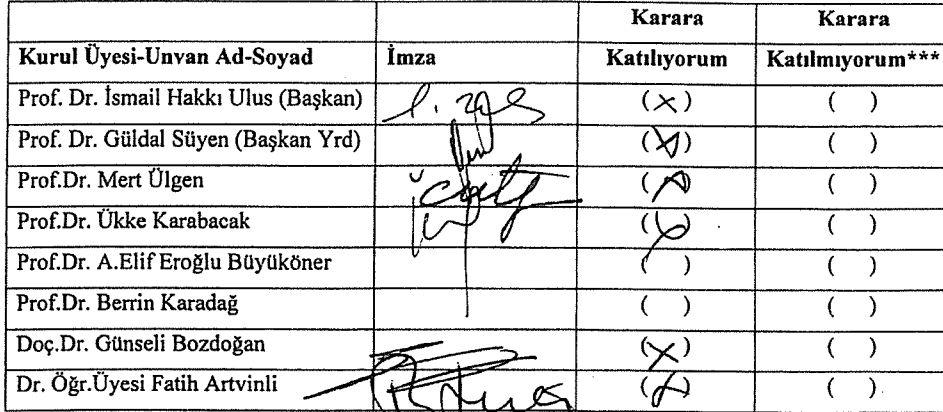 Karara Karara
Kurul Üyesi-Unvan Ad-Soyad İmza Katılıyorum Katılmıyorum***
Prof. Dr. İsmail Hakkı Ulus (Başkan) (X) ( )
Prof. Dr. Güldal Süyen (Başkan Yrd) (X) ( )
Prof.Dr. Mert Ülgen (X) ( )
Prof.Dr. Ükke Karabacak (X) ( )
Prof.Dr. A.Elif Eroğlu Büyüköner ( ) ( )
Prof.Dr. Berrin Karadağ ( ) ( )
Doç.Dr. Günseli Bozdoğan (X) ( )
Dr. Öğr.Üyesi Fatih Artvinli (X) ( )